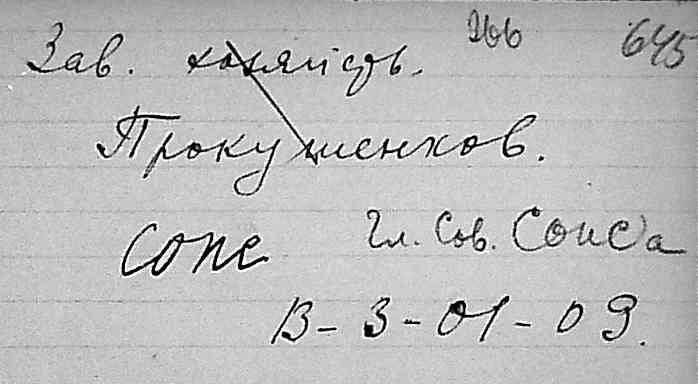 Зав. хозяйств. 266 645
Прокушенков.
СОПС Гл. Сов. СОПСа
В-3-01-09.